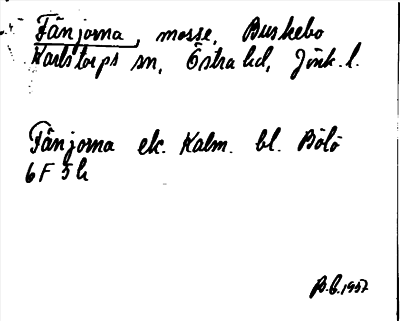 Fänjorna, mosse, Buskebo
Karlstorps sn, Östra hd, Jönk. l.
Fänjorna ek. Kalm. bl. Bölö
6F 5h
B.E. 1957